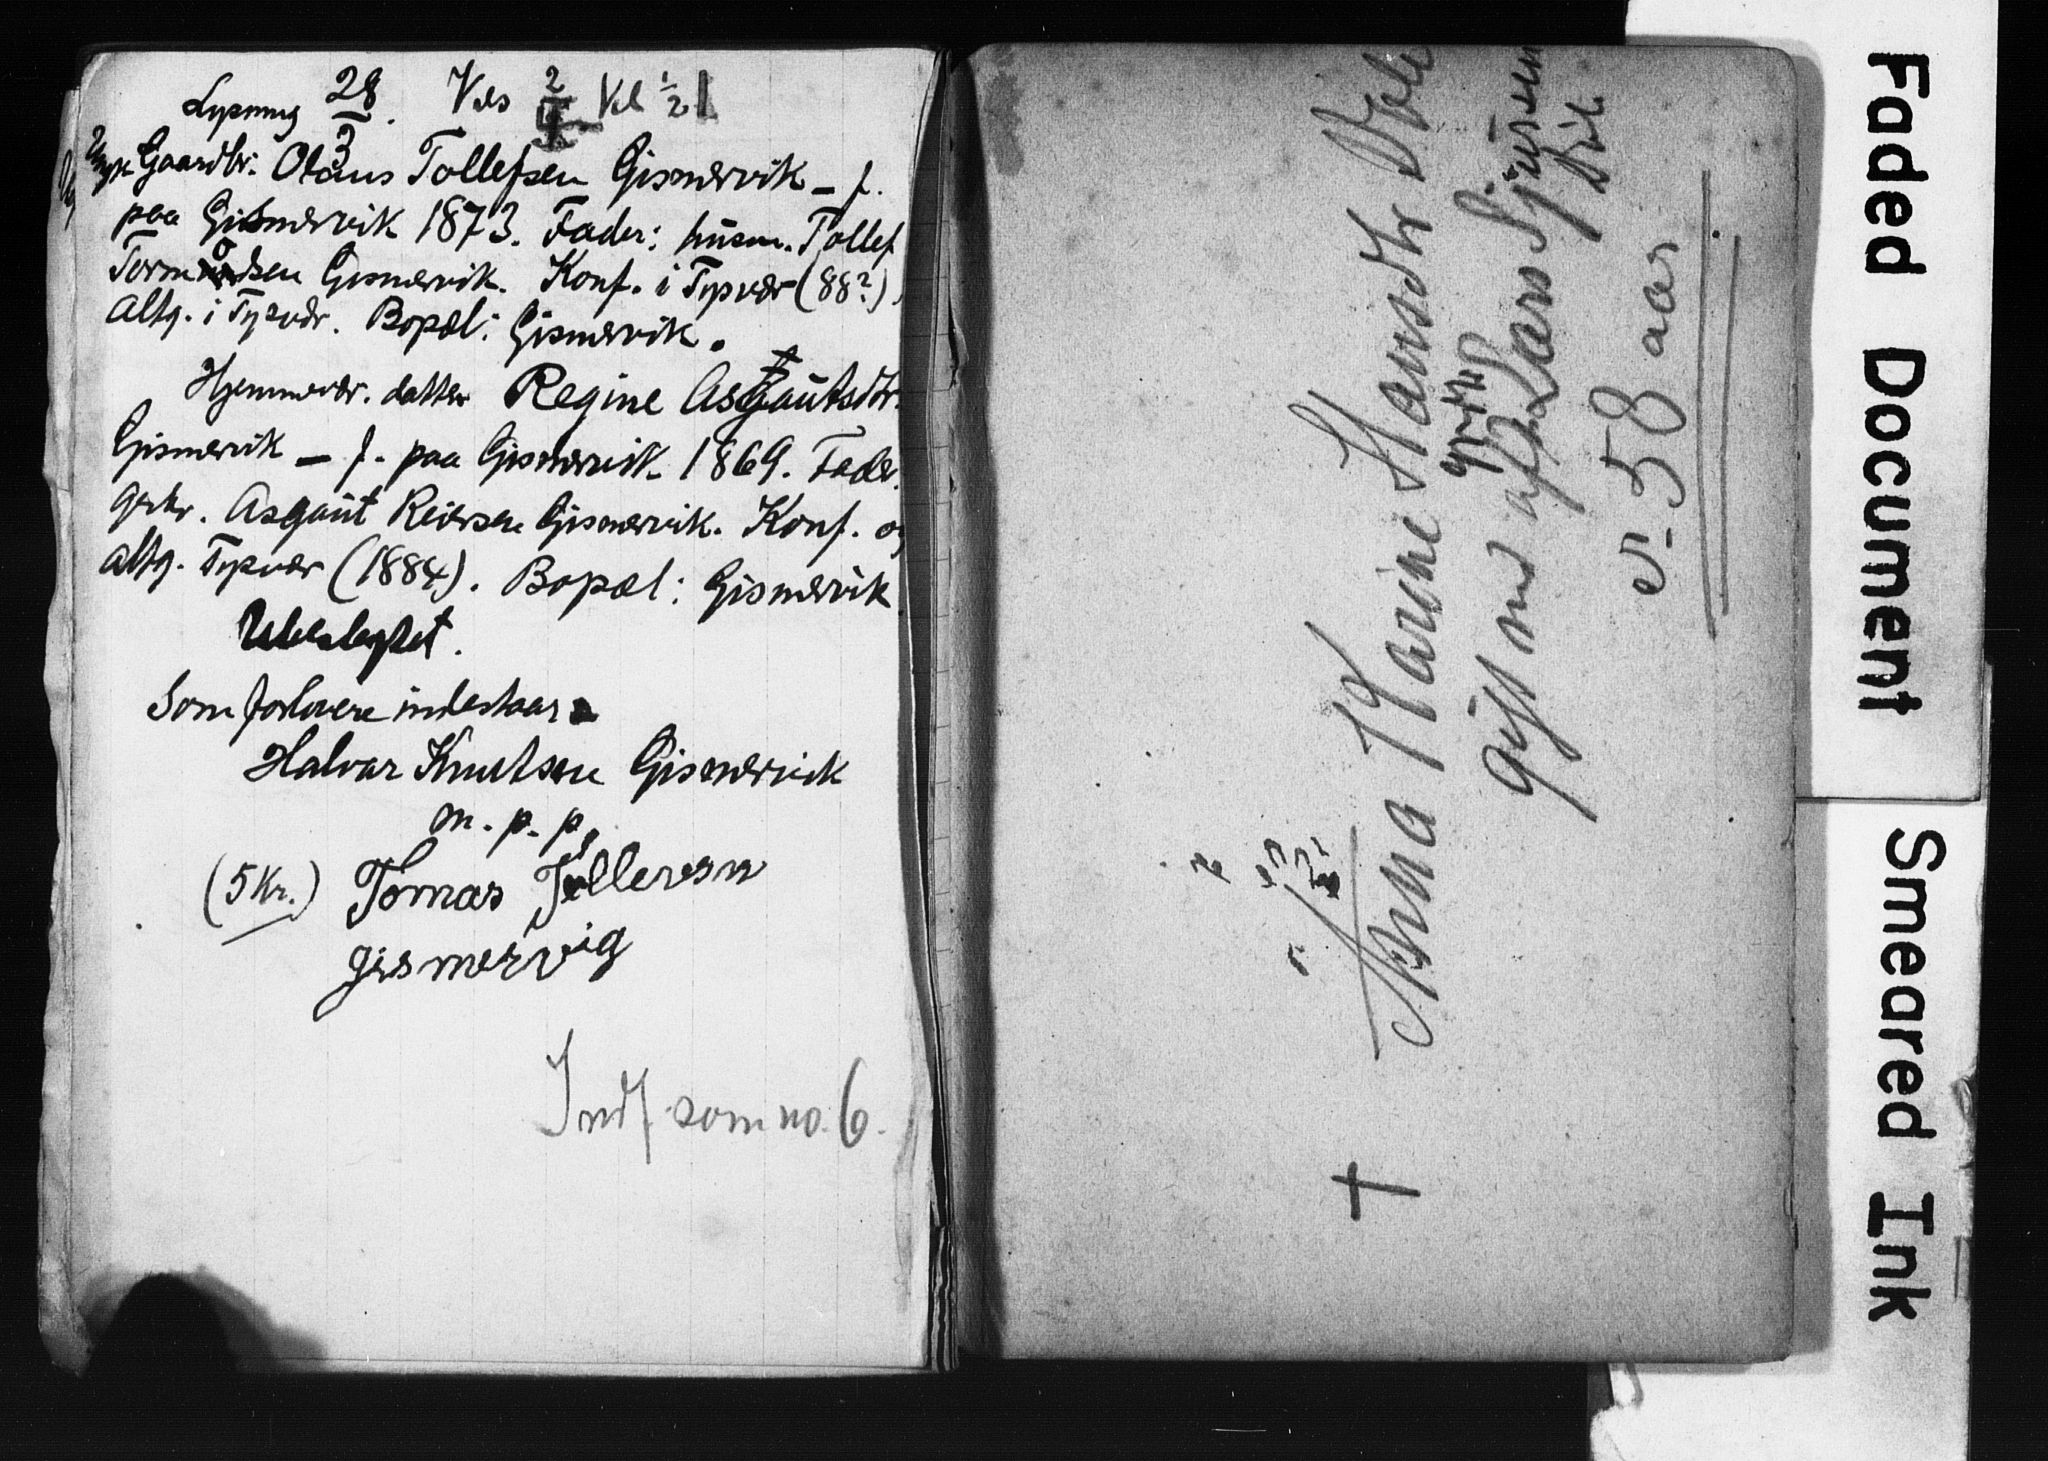 Lysning 28/3. Vies 2/ Kl ½ 1
Ungk Gaardbr: Olaus Tollefsen Gismervik – f.
paa Gismervik 1873. Fader: husm. Tollef
Tormodsen Gismervik. Konf. i Tysvær (88?)
Altg. i Tysvær. Bopæl: Gismervik.
Hjemmevær. datter Regine Asgautsdtr.
Gismervik – f. paa Gismervik 1869. Fader.
Asgaut Reiersen Gismervik. Konf. og
altg. Tysvær (1884). Bopæl: Gismervik
Ubeslegtet.
Som forlovere indestaar
Halvar Knutsen Gismervik
m. p. p.
(5 Kr.) Tomas Tollevsen
Gismervig
Indf. som no. 6.
Anna Karine Hansdtr
gift med Lars Sjursen
58 aar
Faded Document
Smeared Ink